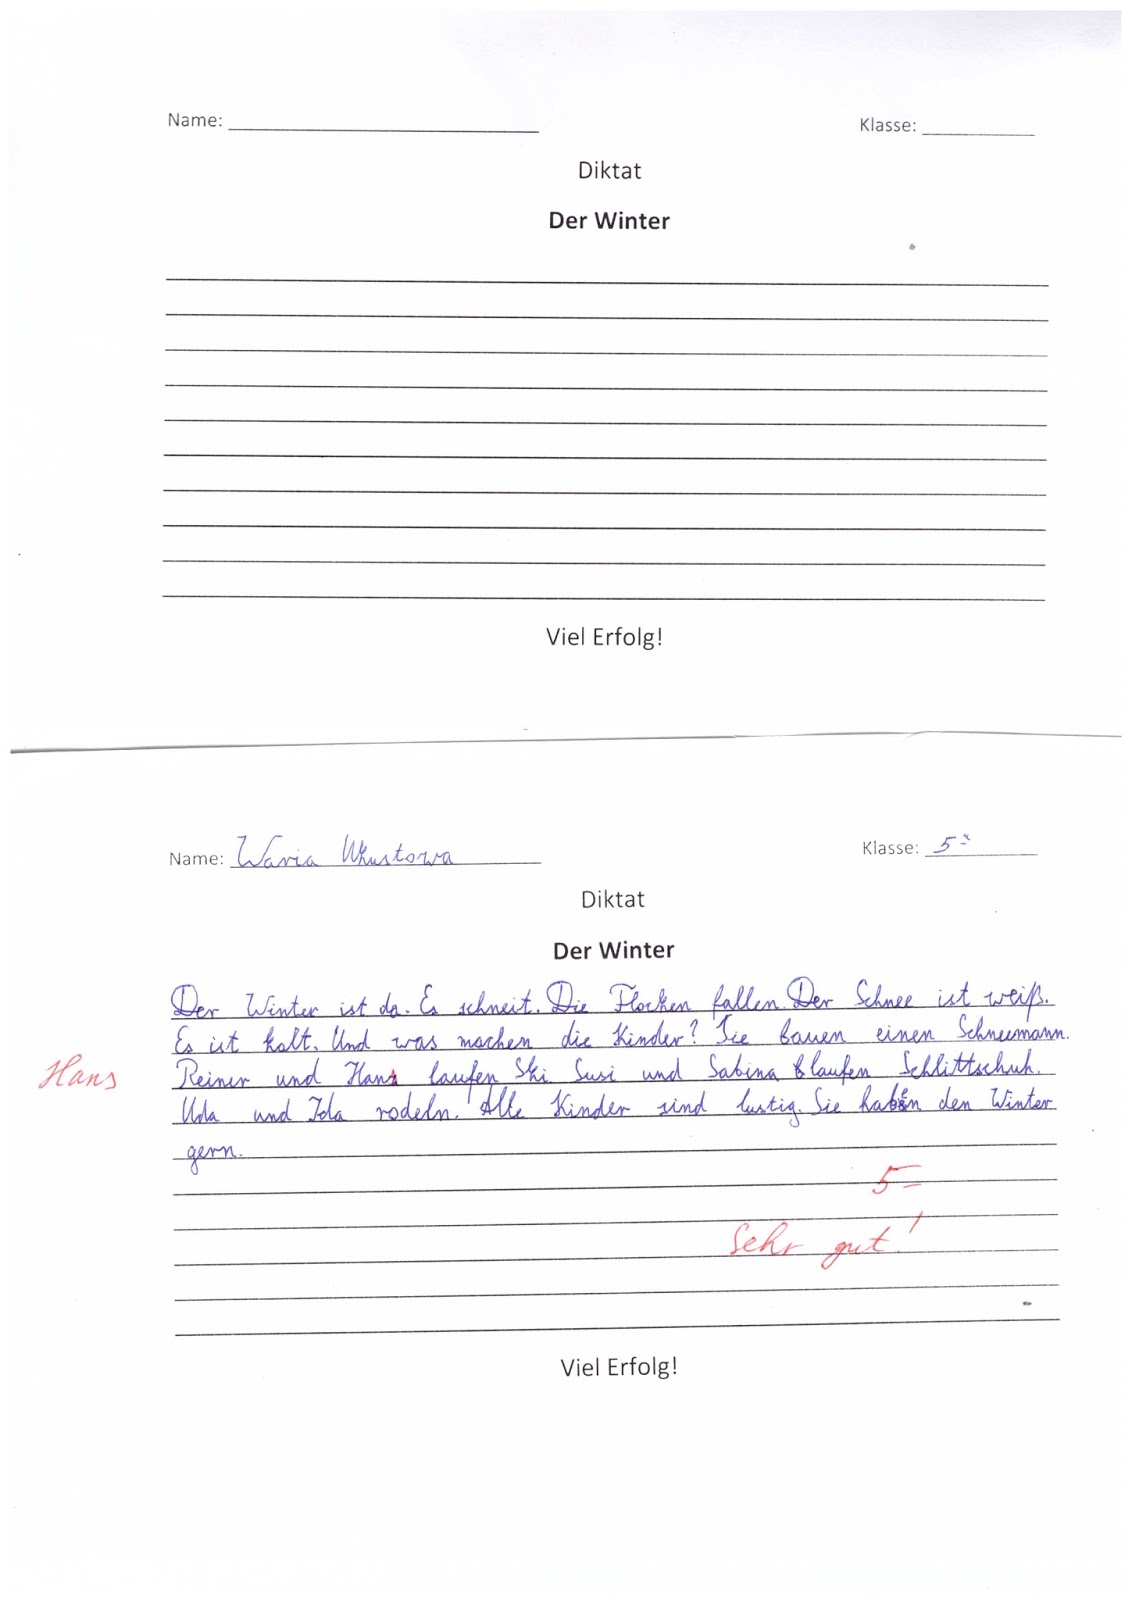 Name: Klasse:
Diktat
Der Winter
Viel Erfolg!
Name: Waria Klasse: 5
Diktat
Der Winter
Der Winter ist da. Es schneit. Die Flocken fallen. Der Schnee ist weiß.
Es ist kalt. Und was machen die Kinder? Sie bauen einen Schneemann.
Hans
Reiner und Hans laufen Ski. Susi und Sabina laufen Schlittschuh.
Uda und Ida rodeln. Alle Kinder sind lustig. Sie haben den Winter
gern.
5-
Sehr gut!
Viel Erfolg!